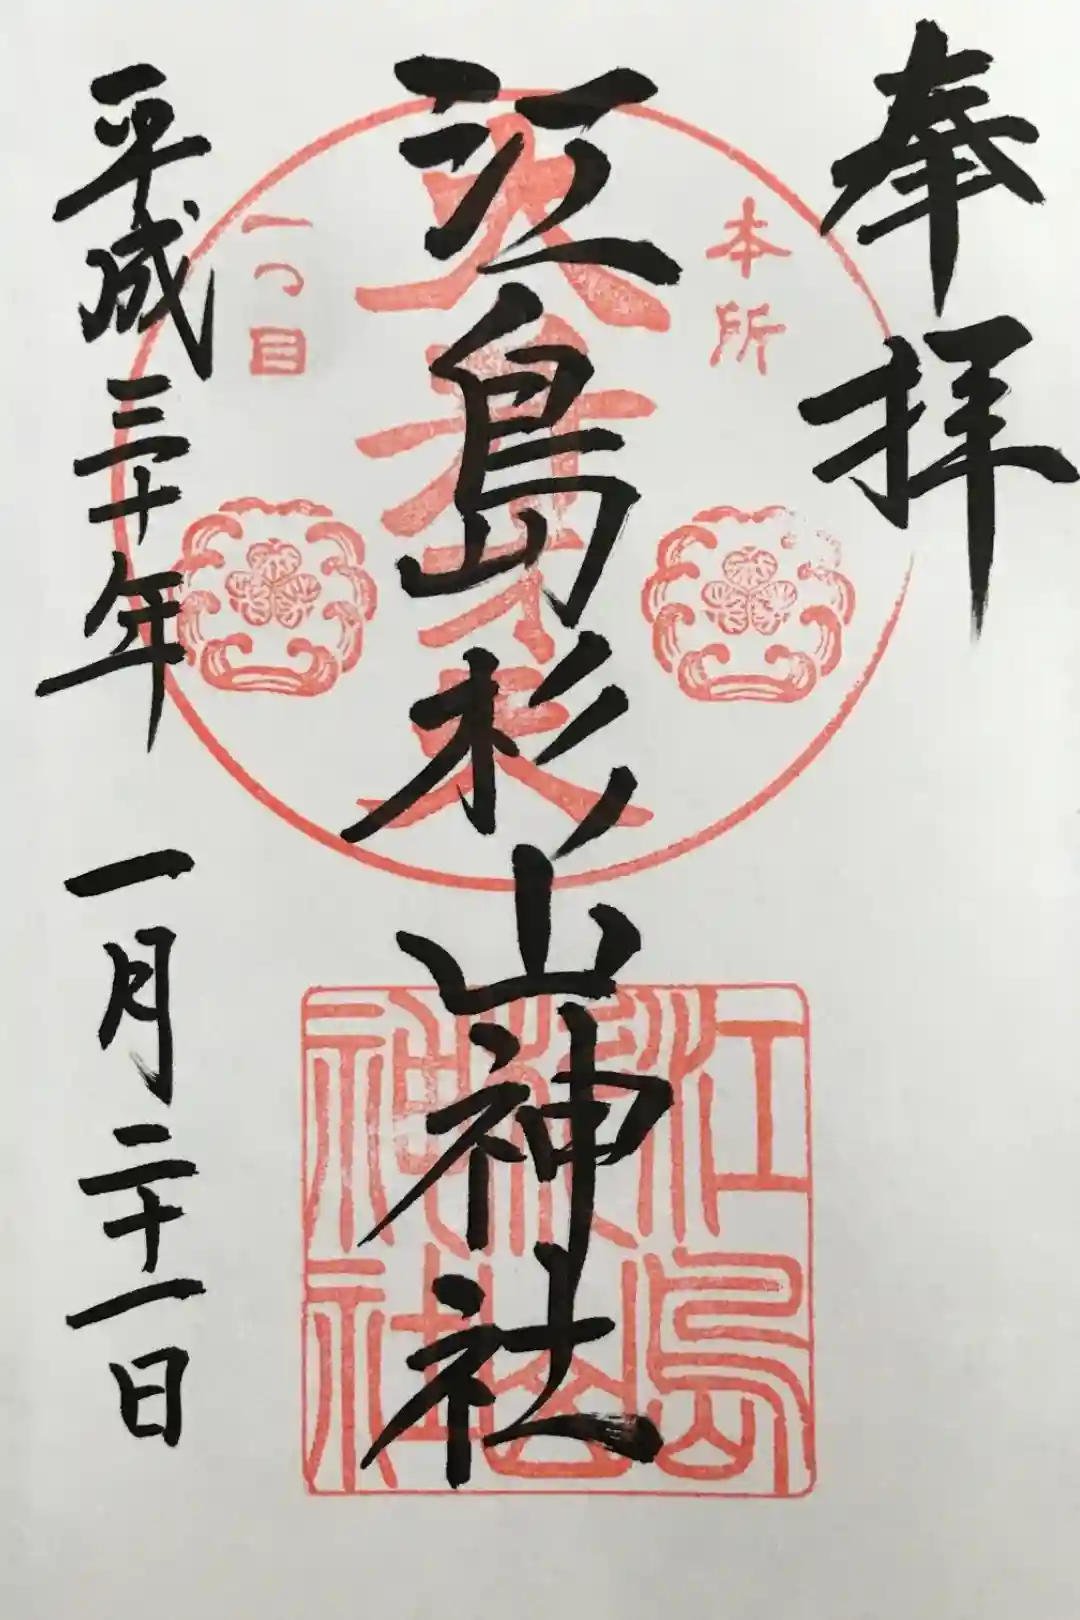 奉拝
本所
江島杉山神社
一つ目
平成三十年 一月二十一日
江島
杉山
神社